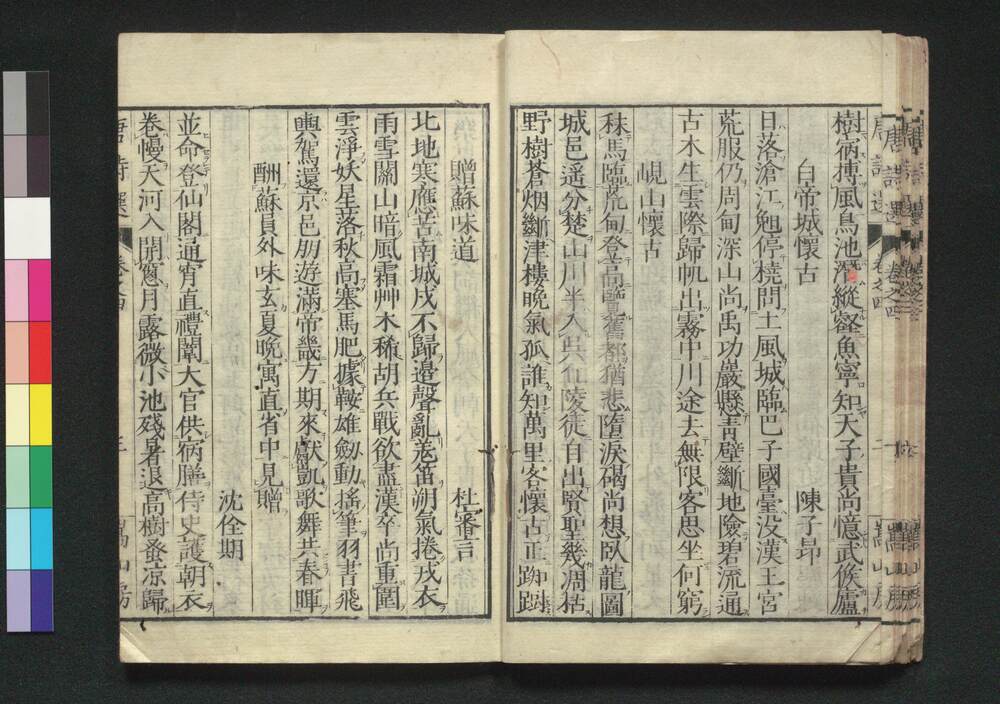 樹宿摶風鳥池潛縱壑魚寧知天子貴尚憶武侯廬
白帝城懷古 陳子昂
日落滄江晚停橈問土風城臨巴子國臺沒漢王宮
荒服仍周甸深山尚禹功巖懸青壁斷地險碧流通
古木生雲際歸帆出霧中川途去無限客思坐何窮
峴山懷古
秣馬臨荒甸登高覽舊都猶悲墮淚碣尚想臥龍圖
城邑遥分楚山川半入吳丘陵徒自出賢聖幾凋枯
野樹蒼烟斷津樓晚氣孤誰知萬里客懷古正踟蹰
贈蘇味道 杜審言
北地寒應苦南城戍不歸邉聲亂羗笛朔氣捲戎衣
雨雪關山暗風霜艸木稀胡兵戰欲盡漢卒尚重圍
雲淨妖星落秋高塞馬肥據鞍雄劔動搖筆羽書飛
輿駕還京邑朋遊滿帝畿方期來獻凱歌舞共春暉
酬蘇員外味玄夏晚寓直省中見贈
沈佺期
並命登仙閣通宵直禮闈大官供宿膳侍史護朝衣
卷幔天河入開窻月露微小池殘暑退高樹蚤凉歸
唐詩選 卷之四 嵩山房